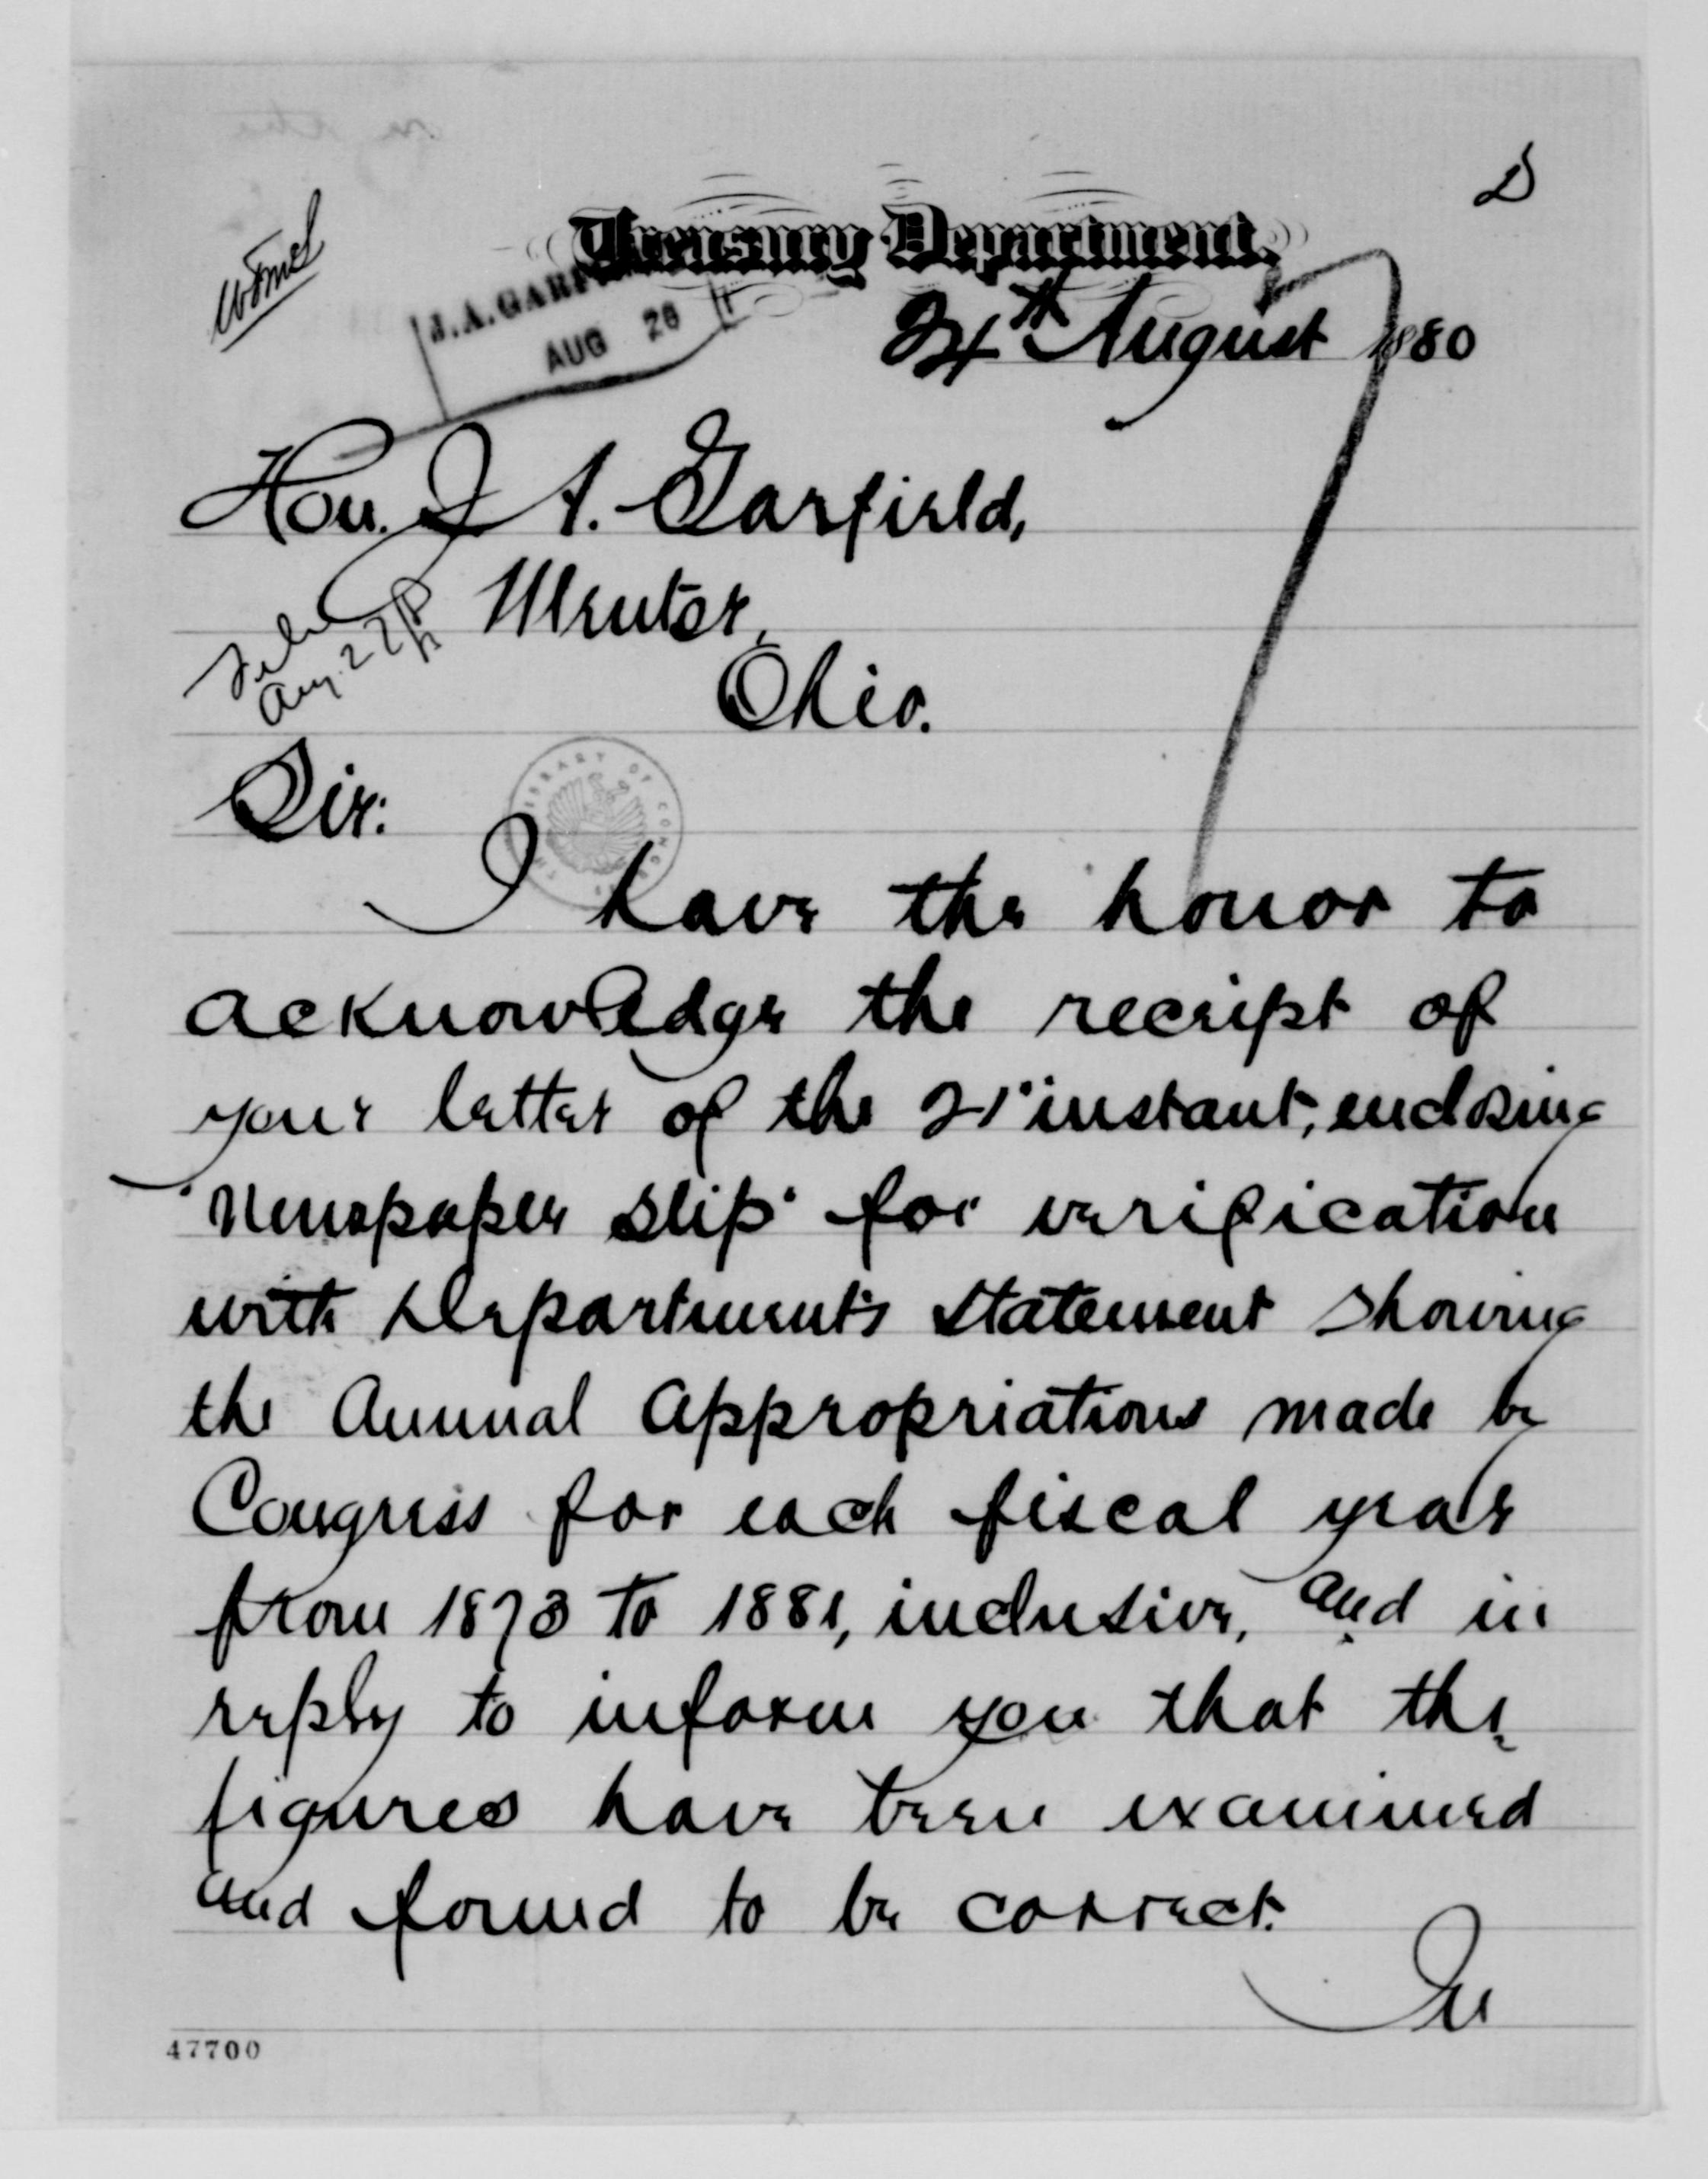 D
Treasury Department.
J. A. GARFI
AUG 26
24th August 1880
Hon. J A. Garfield,
Mentor,
Ohio.
Aug. 27
Sir:
LIBRARY OF CONGRESS
I have the honor to
acknowledge the receipt of
your letter of the 21" instant, enclosing
"Newspaper Slip" for verification
with Department's Statement showing
the Annual Appropriations made by
Congress for each fiscal year
from 1873 to 1881, inclusive, and in
reply to inform you that the
figures have been examined
and found to be correct.
In
47700